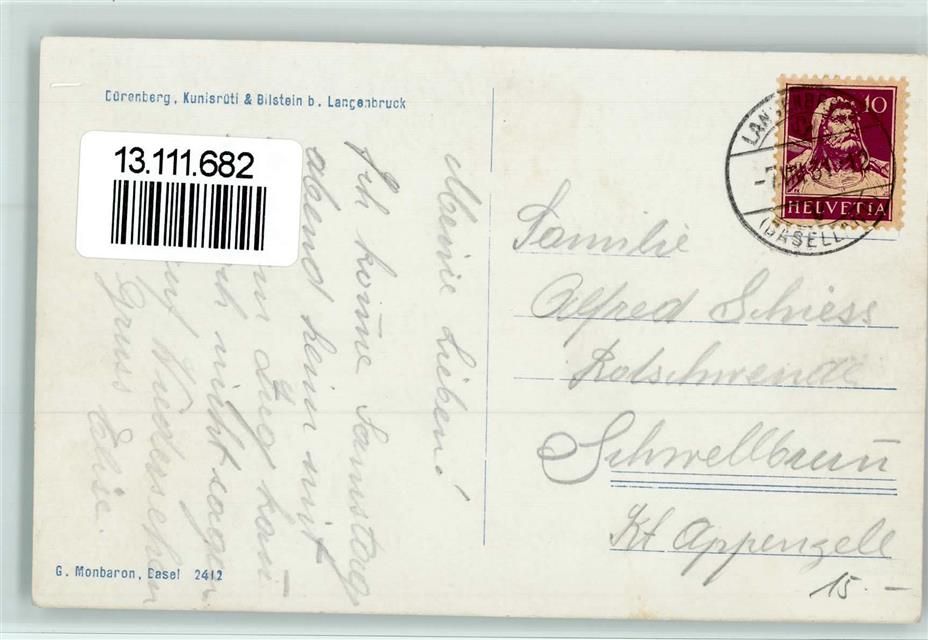 Dürenberg, Kunisrüti & Bilstein b. Langenbruck
13.111.682
Meine Lieben!
Ich komme Samstag
abend heim mit
Zug kan
ich nicht sagen
auf Wiedersehen
Gruss Elise.
G. Monbaron, Basel 2412
10
HELVETIA
(BASELL
Familie
Alfred Schiess
Rotschwende
Schwellbrun̄
Kt Appenzell
15.-